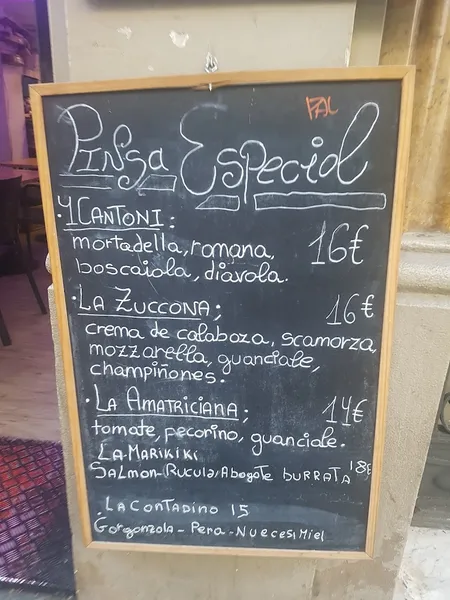 PAL
Pinsa Especial
· 4 CANTONI:
mortadella, romana, 16€
boscaiola, diavola.
· LA ZUCCONA; 16€
crema de calabaza, scamorza,
mozzarella, guanciale,
champiñones.
· LA AMATRICIANA; 14€
tomate, pecorino, guanciale.
LA MARIKIKI
SALMON-RUCULA, Abogate BURRATA 18€
. LA CONTADINO 15
Gorgonzola - Pera - Nueces, Miel